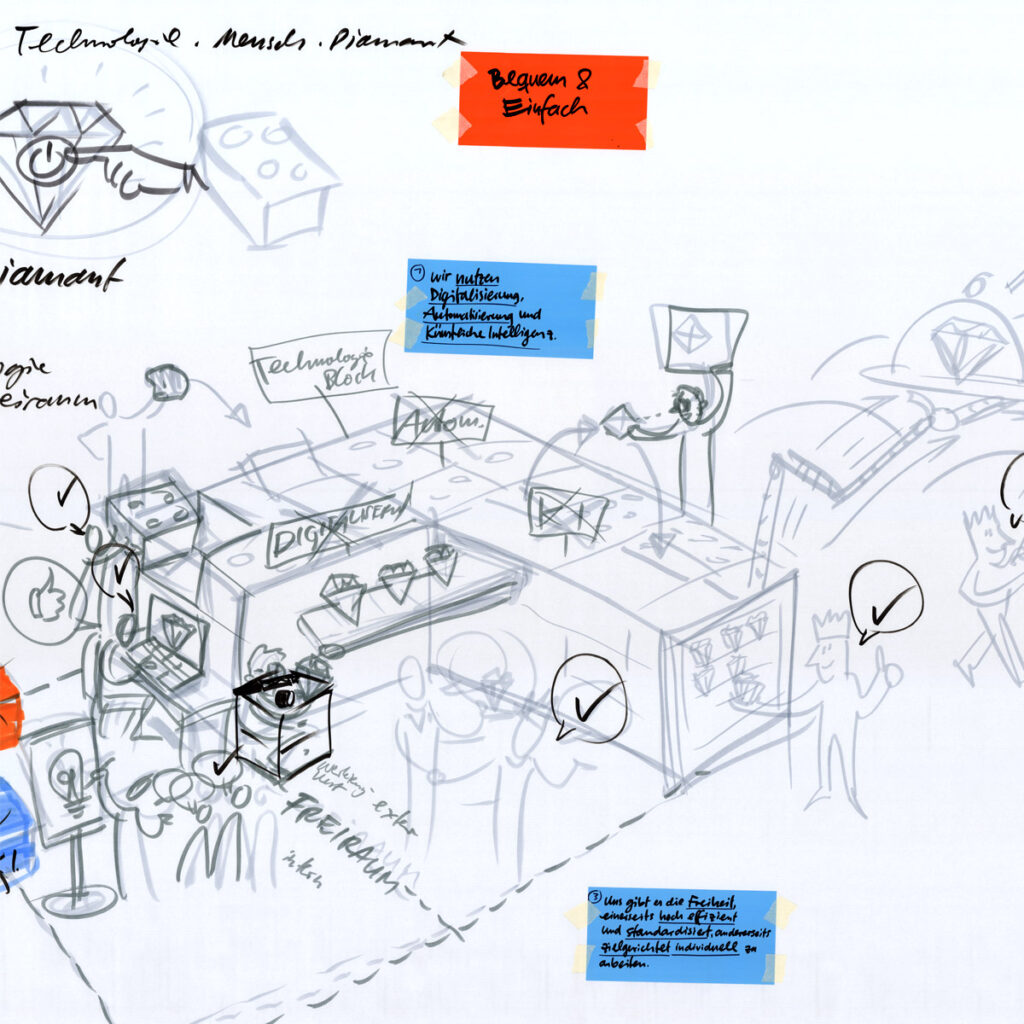 Technologie . Mensch . Diamant
Bequem &
Einfach
iamant
① wir nutzen
Digitalisierung,
Automatisierung und
Künstliche Intelligenz.
Technologie
Block
ogie
eiraum
Autom.
KI
FREIRAUM
extern
intern
③ Uns gibt es die Freiheit,
einerseits hoch effizient
und standardisiert, andererseits
zielgerichtet individuell zu
arbeiten.